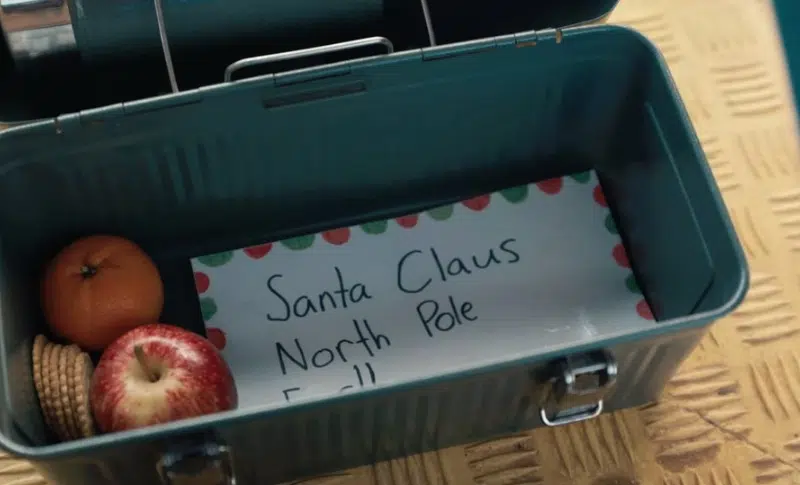 Santa Claus
North Pole